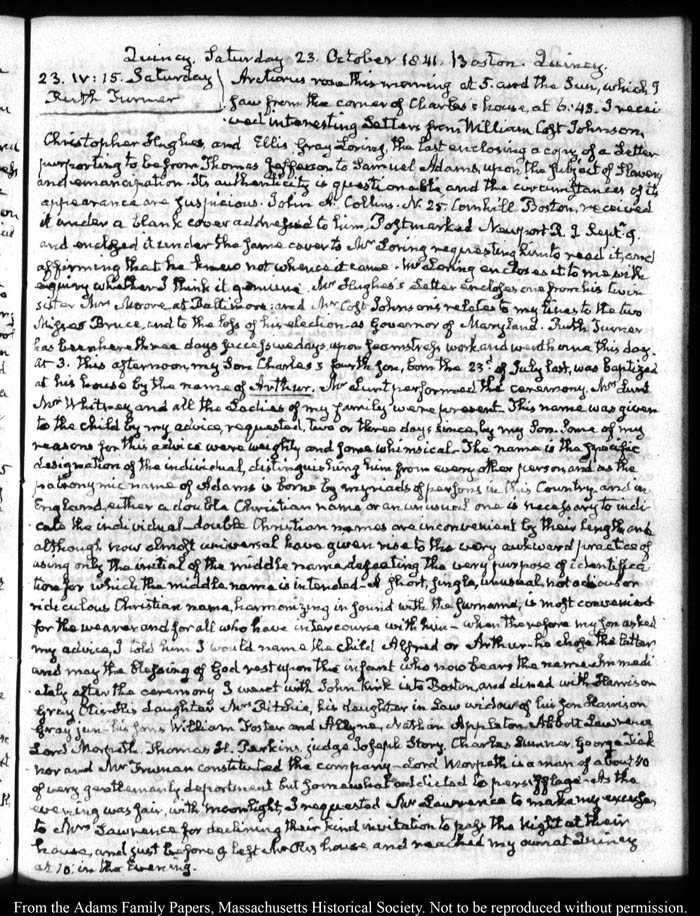 Quincy. Saturday 23. October 1841. Boston. Quincy.
23. IV: 15. Saturday } Arcturus rose this morning at 5. and the Sun, which I
Ruth Turner saw from the corner of Charles's house, at 6:43. I recei
ved interesting Letters from William Cost Johnson,
Christopher Hughes, and Ellis Gray Loring, the last enclosing a copy, of a Letter
purporting to be from Thomas Jefferson to Samuel Adams, upon the subject of Slavery
and emancipation. Its authenticity is questionable and the circumstances of its
appearance are suspicious. John A. Collins. N. 25. Cornhill Boston, received
it under a blank cover addressed to him, Postmarked Newport R. I Sept. 9.
and enclosed it under the same cover to Mr Loring requesting him to read it, and
affirming that he knew not whence it came. Mr Loring encloses it to me with
enquiry whether I think it genuine. Mr Hughes's Letter encloses one from his twin
sister Mrs Moore at Baltimore: and Mr Cost Johnson's relates to my lines to the two
Misses Bruce, and to the loss of his election as Governor of Maryland. Ruth Turner
has been here three days successive days upon seamstress work and went home this day.
At 3. this afternoon, my Son Charles's fourth son, born the 23d. of July last, was baptized
at his house by the name of Arthur. Mr Lunt performed the ceremony. Mrs Lunt
Mr Whitney and all the Ladies of my family were present. This name was given
to the child by my advice, requested, two or three days since, by my Son. Some of my
reasons for this advice were weighty and some whimsical. The name is the specific
designation of the individual, distinguishing him from every other person, and as the
patronymic name of Adams is borne by myriads of persons in this Country and in
England, either a double Christian name or an unusual one is necessary to indi-
cate the individual—double Christian names are inconvenient by their length, and
although now almost universal have given rise to the very awkward practice of
using only the initial of the middle name, defeating the very purpose of identifica
tion for which the middle name is intended—A short, single, unusual, not odious or
ridiculous Christian name, harmonizing in sound with the surname, is most convenient
for the wearer and for all who have intercourse with him—when therefore my son asked
my advice, I told him I would name the child Alfred or Arthur—he chose the latter
and may the blessing of God rest upon the infant who now bears the name. Immedi
ately after the ceremony I went with John Kirk into Boston, and dined with Harrison
Gray Otis—His daughter Mrs Ritchie, his daughter in Law widow of his son Harrison
Gray jun—his sons William Foster and Alleyne, Nathan Appleton, Abbott Lawrence
Lord Morpeth, Thomas H. Perkins, judge Joseph Story, Charles Sumner, George Tick
nor and Mr Truman constituted the company—Lord Morpeth is a man of about 40
of very gentlemanly deportment but somewhat addicted to persifflage—As the
evening was fair, with moonlight, I requested Mr Lawrence to make my excuses
to Mrs Lawrence for declining their kind invitation to pass the Night at their
house, and just before 9 left Mr Otis's house, and reached my own at Quincy
at 10: in the Evening.
From the Adams Family Papers, Massachusetts Historical Society. Not to be reproduced without permission.